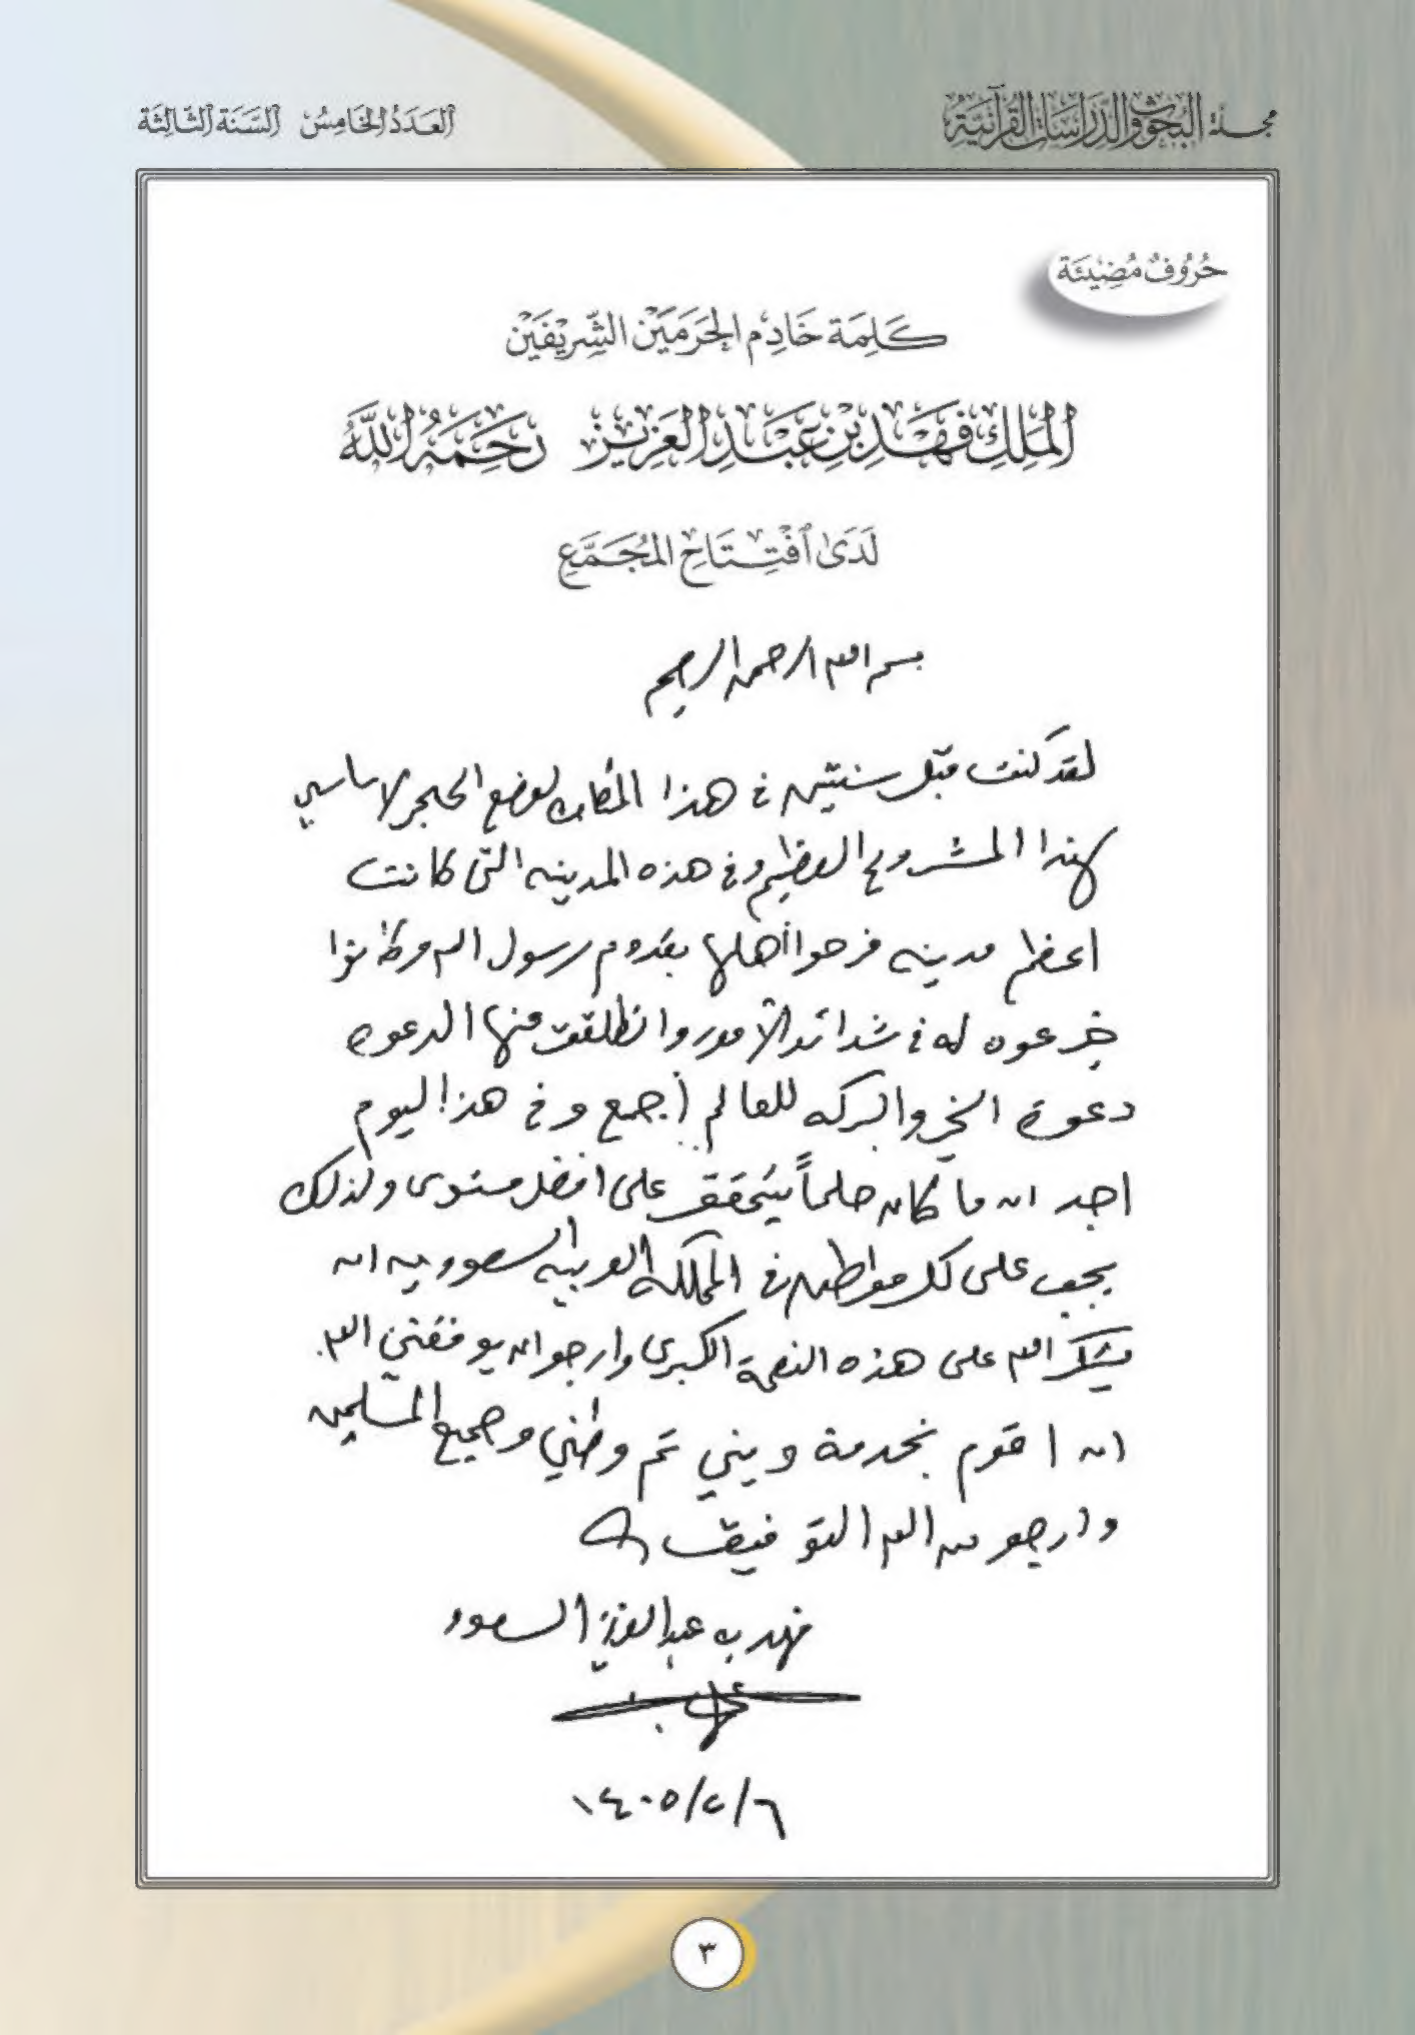 مجلة البحوث والدراسات القرآنية
العَدَدُ الخَامِسُ السَّنَة الثَّالِثَة
حُرُوفٌ مُضِيئَة
كَلِمَة خَادِم الحَرَمَيْن الشَّرِيْفَيْن
المَلِك فَهْد بْن عَبْد العَزِيز رَحِمَهُ اللَّهُ
لَدَى افْتِتَاحِ المُجَمَّعِ
بسم الله الرحمن الرحيم
لقد كنت قبل سنتين في هذا المكان لوضع الحجر الاساسي
لهذا المشروع العظيم وفي هذه المدينه التي كانت
اعظم مدينه فرحوا أهلها بقدوم رسول الله وكانوا
خير عون له في شدائد الأمور وانطلقت منها الدعوه
دعوة الخير والبركه للعالم أجمع وفي هذا اليوم
اجد ان ما كان حلماً يتحقق على افضل مستوى ولذلك
يجب على كل مواطن في المملكه العربيه السعوديه ان
يشكر الله على هذه النعمة الكبرى وارجو ان يوفقني الله
ان اقوم بخدمة ديني ثم وطني وجميع المسلمين
وارجو من الله التوفيق
فهد بن عبدالعزيز السعود
١٤٠٥/٢/٦
٣